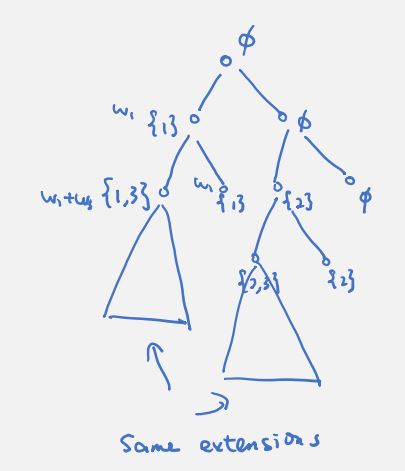 ϕ
w₁ {1}
ϕ
w₁+w₃ {1,3}
w₁ {1}
{2}
ϕ
{2,3}
{2}
Same extensions